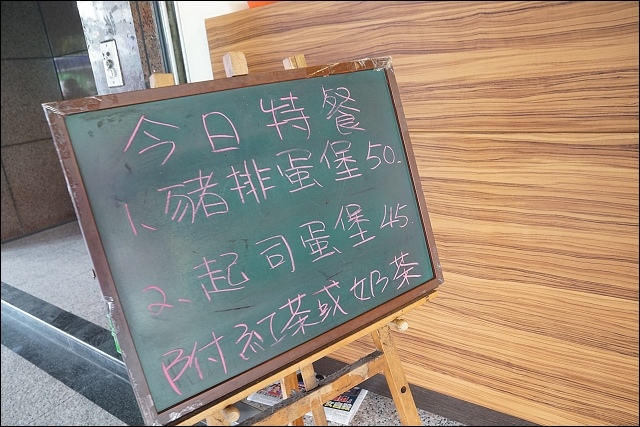 今日特餐
1、豬排蛋堡 50.
2、起司蛋堡 45.
附紅茶或奶茶